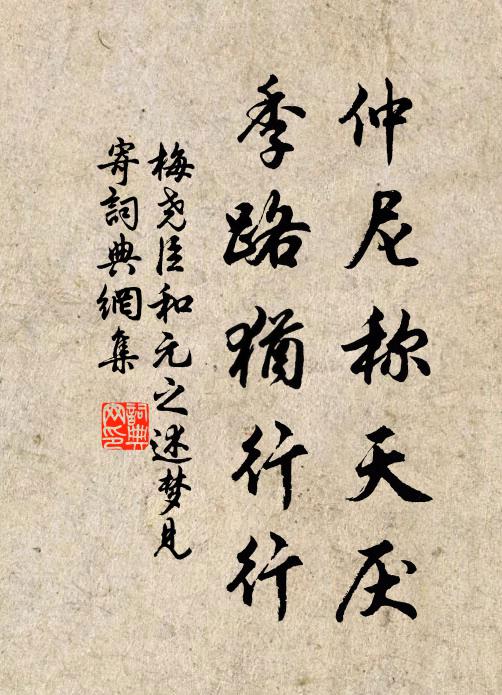 仲尼称天厌
季路犹行行
梅尧臣和元之述梦见
寄詞典網集
詞典网印